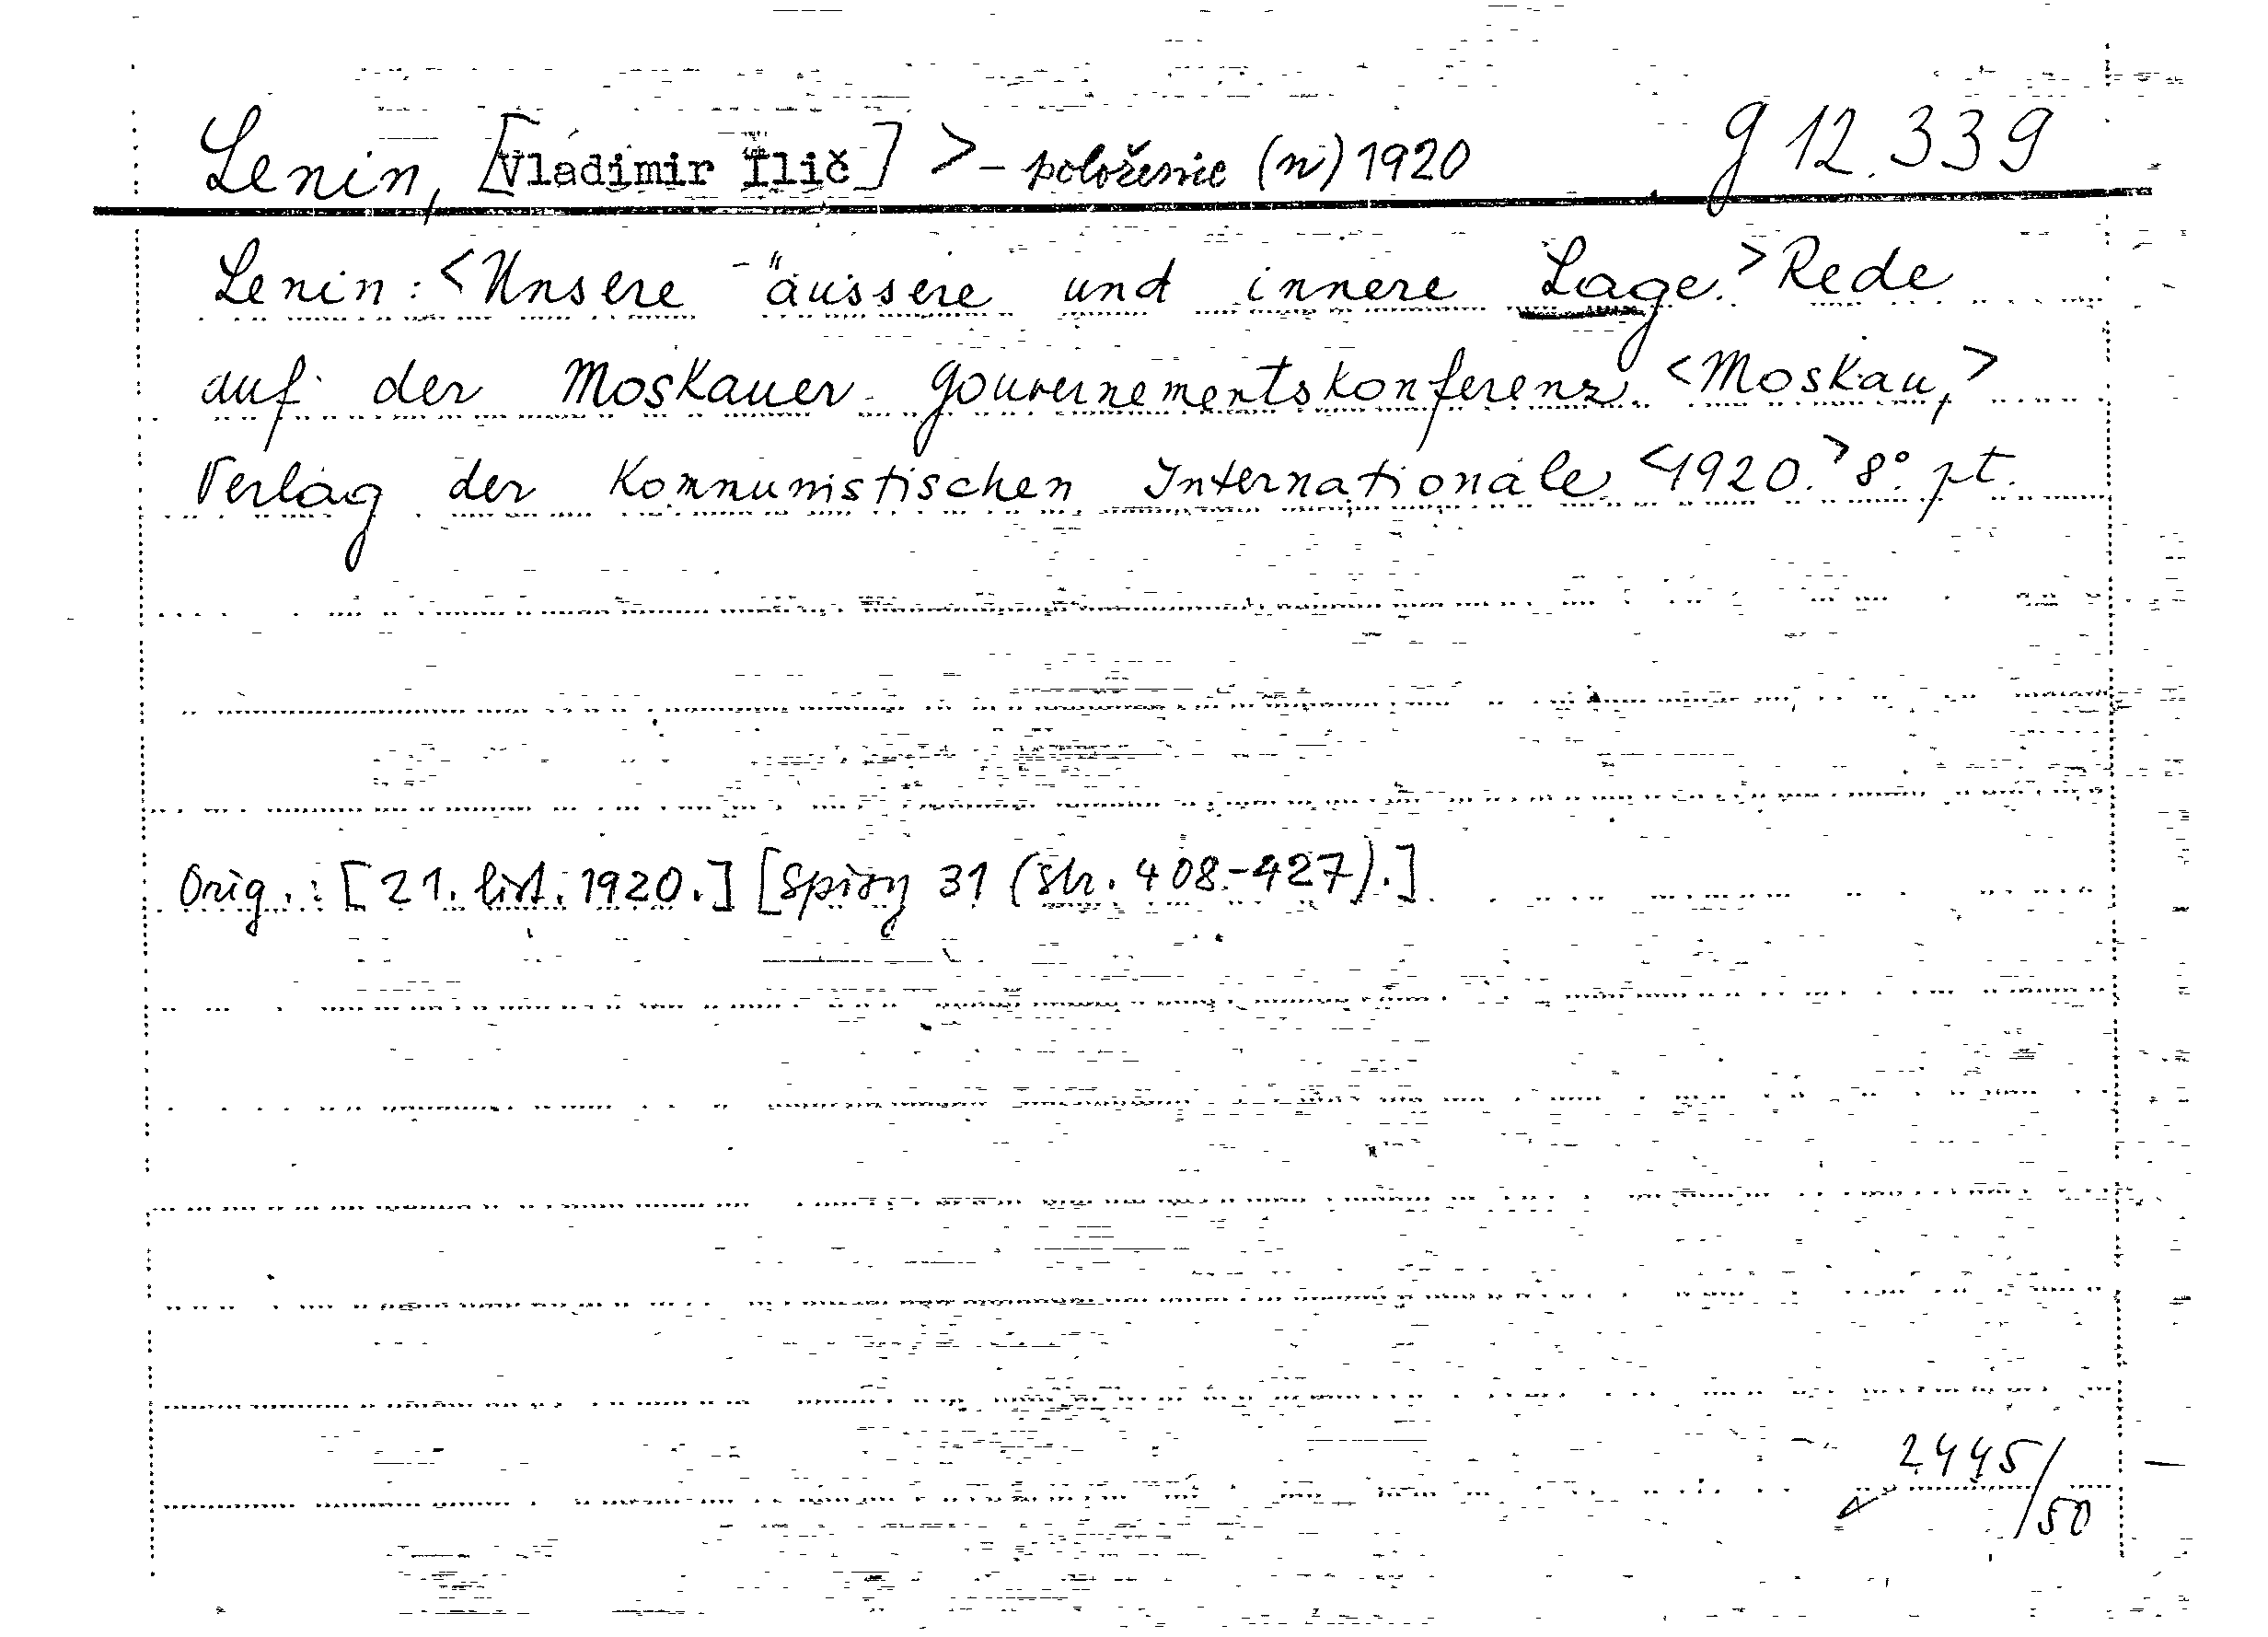 Lenin, [Vladimir Ilič] > – položenie (n) 1920 g 12.339
Lenin: <Unsere äussere und innere Lage.> Rede
auf der Moskauer Gouvernementskonferenz. <Moskau,>
Verlag der Kommunistischen Internationale <1920.> 8°. pt.
Orig.: [21. list. 1920.] [Spisy 31 (str. 408.-427).]
2445/50